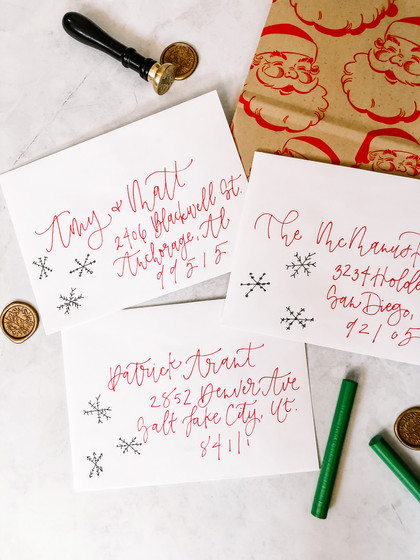 Amy & Matt
2406 Blackwell St.
Anchorage, Al
99515
The McManus
3234 Holde
San Diego,
92105
Patrick Arant
2852 Denver Ave
Salt Lake City, Ut.
84111